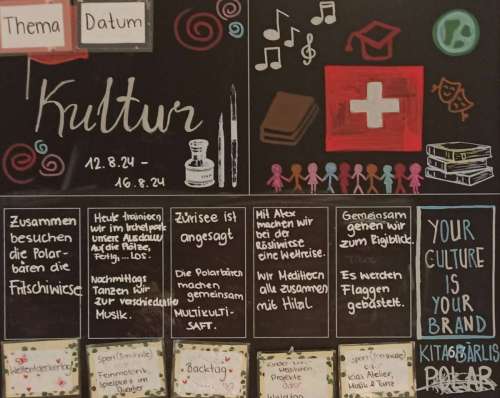 Thema
Datum
Kultur
12.8.24 -
16.8.24
Zusammen
besuchen
die Polar-
bären die
Fritschiwiese.
Heute trainieren
wir im Irchelpark
unsere Ausdauer
Auf die Plätze,
Fertig,... Los.
Nachmittags
Tanzen wir
zur verschiedene
Musik.
Zürisee ist
angesagt
Die Polarbären
machen
gemeinsam
MULTIKULTI-
SAFT.
Mit Alex
machen wir
bei der
Rösliwiese
eine Weltreise.
Wir Meditieren
alle zusammen
mit Hilal
Gemeinsam
gehen wir
zum Rigiblick.
Es werden
Flaggen
gebastelt.
YOUR
CULTURE
IS
YOUR
BRAND
KITA BÄRLIS
POLAR
Weltentdeckertag
Feinmotorik
Spielplatz im
Quartier
Backtag
Projekte
Musik & Tanz